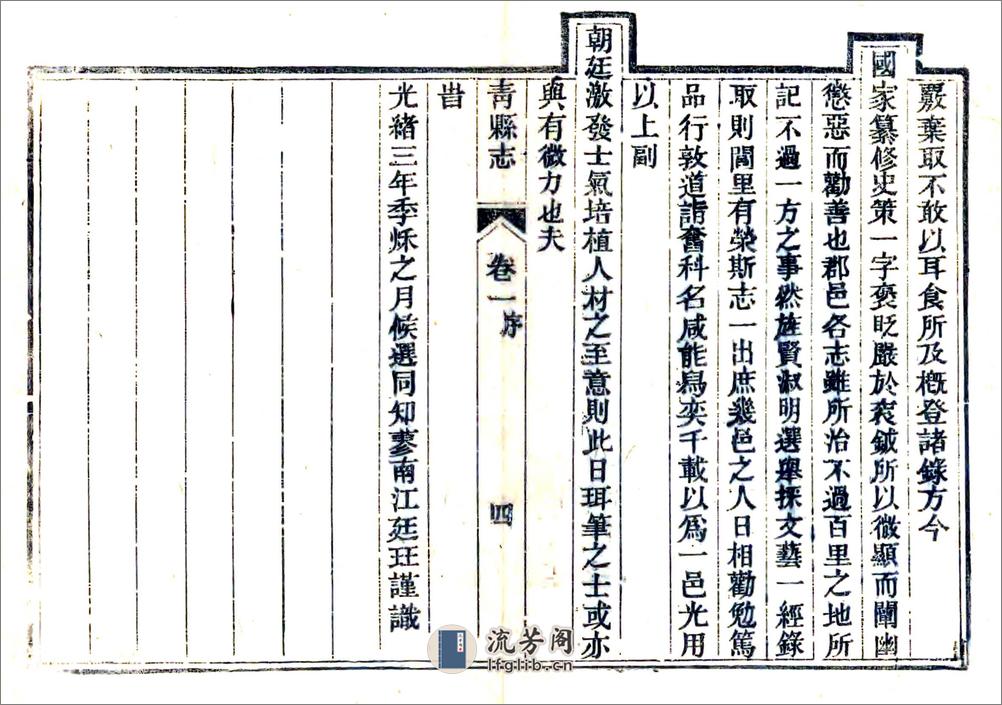 覈棄取不敢以耳食所及概登諸錄方今
國家纂修史策一字褒貶嚴於袞鉞所以微顯而闡幽
懲惡而勸善也郡邑各志雖所治不過百里之地所
記不過一方之事然旌賢淑明選舉採文藝一經錄
取則閭里有榮斯志一出庶幾邑之人日相勸勉篤
品行敦道誼奮科名咸能爲奕千載以爲一邑光用
以上副
朝廷激發士氣培植人材之至意則此日珥筆之士或亦
與有微力也夫
靑縣志
卷一序
四
旹
光緒三年季烁之月候選同知蓼南江廷玨謹識
流芳阁
lfglib.cn